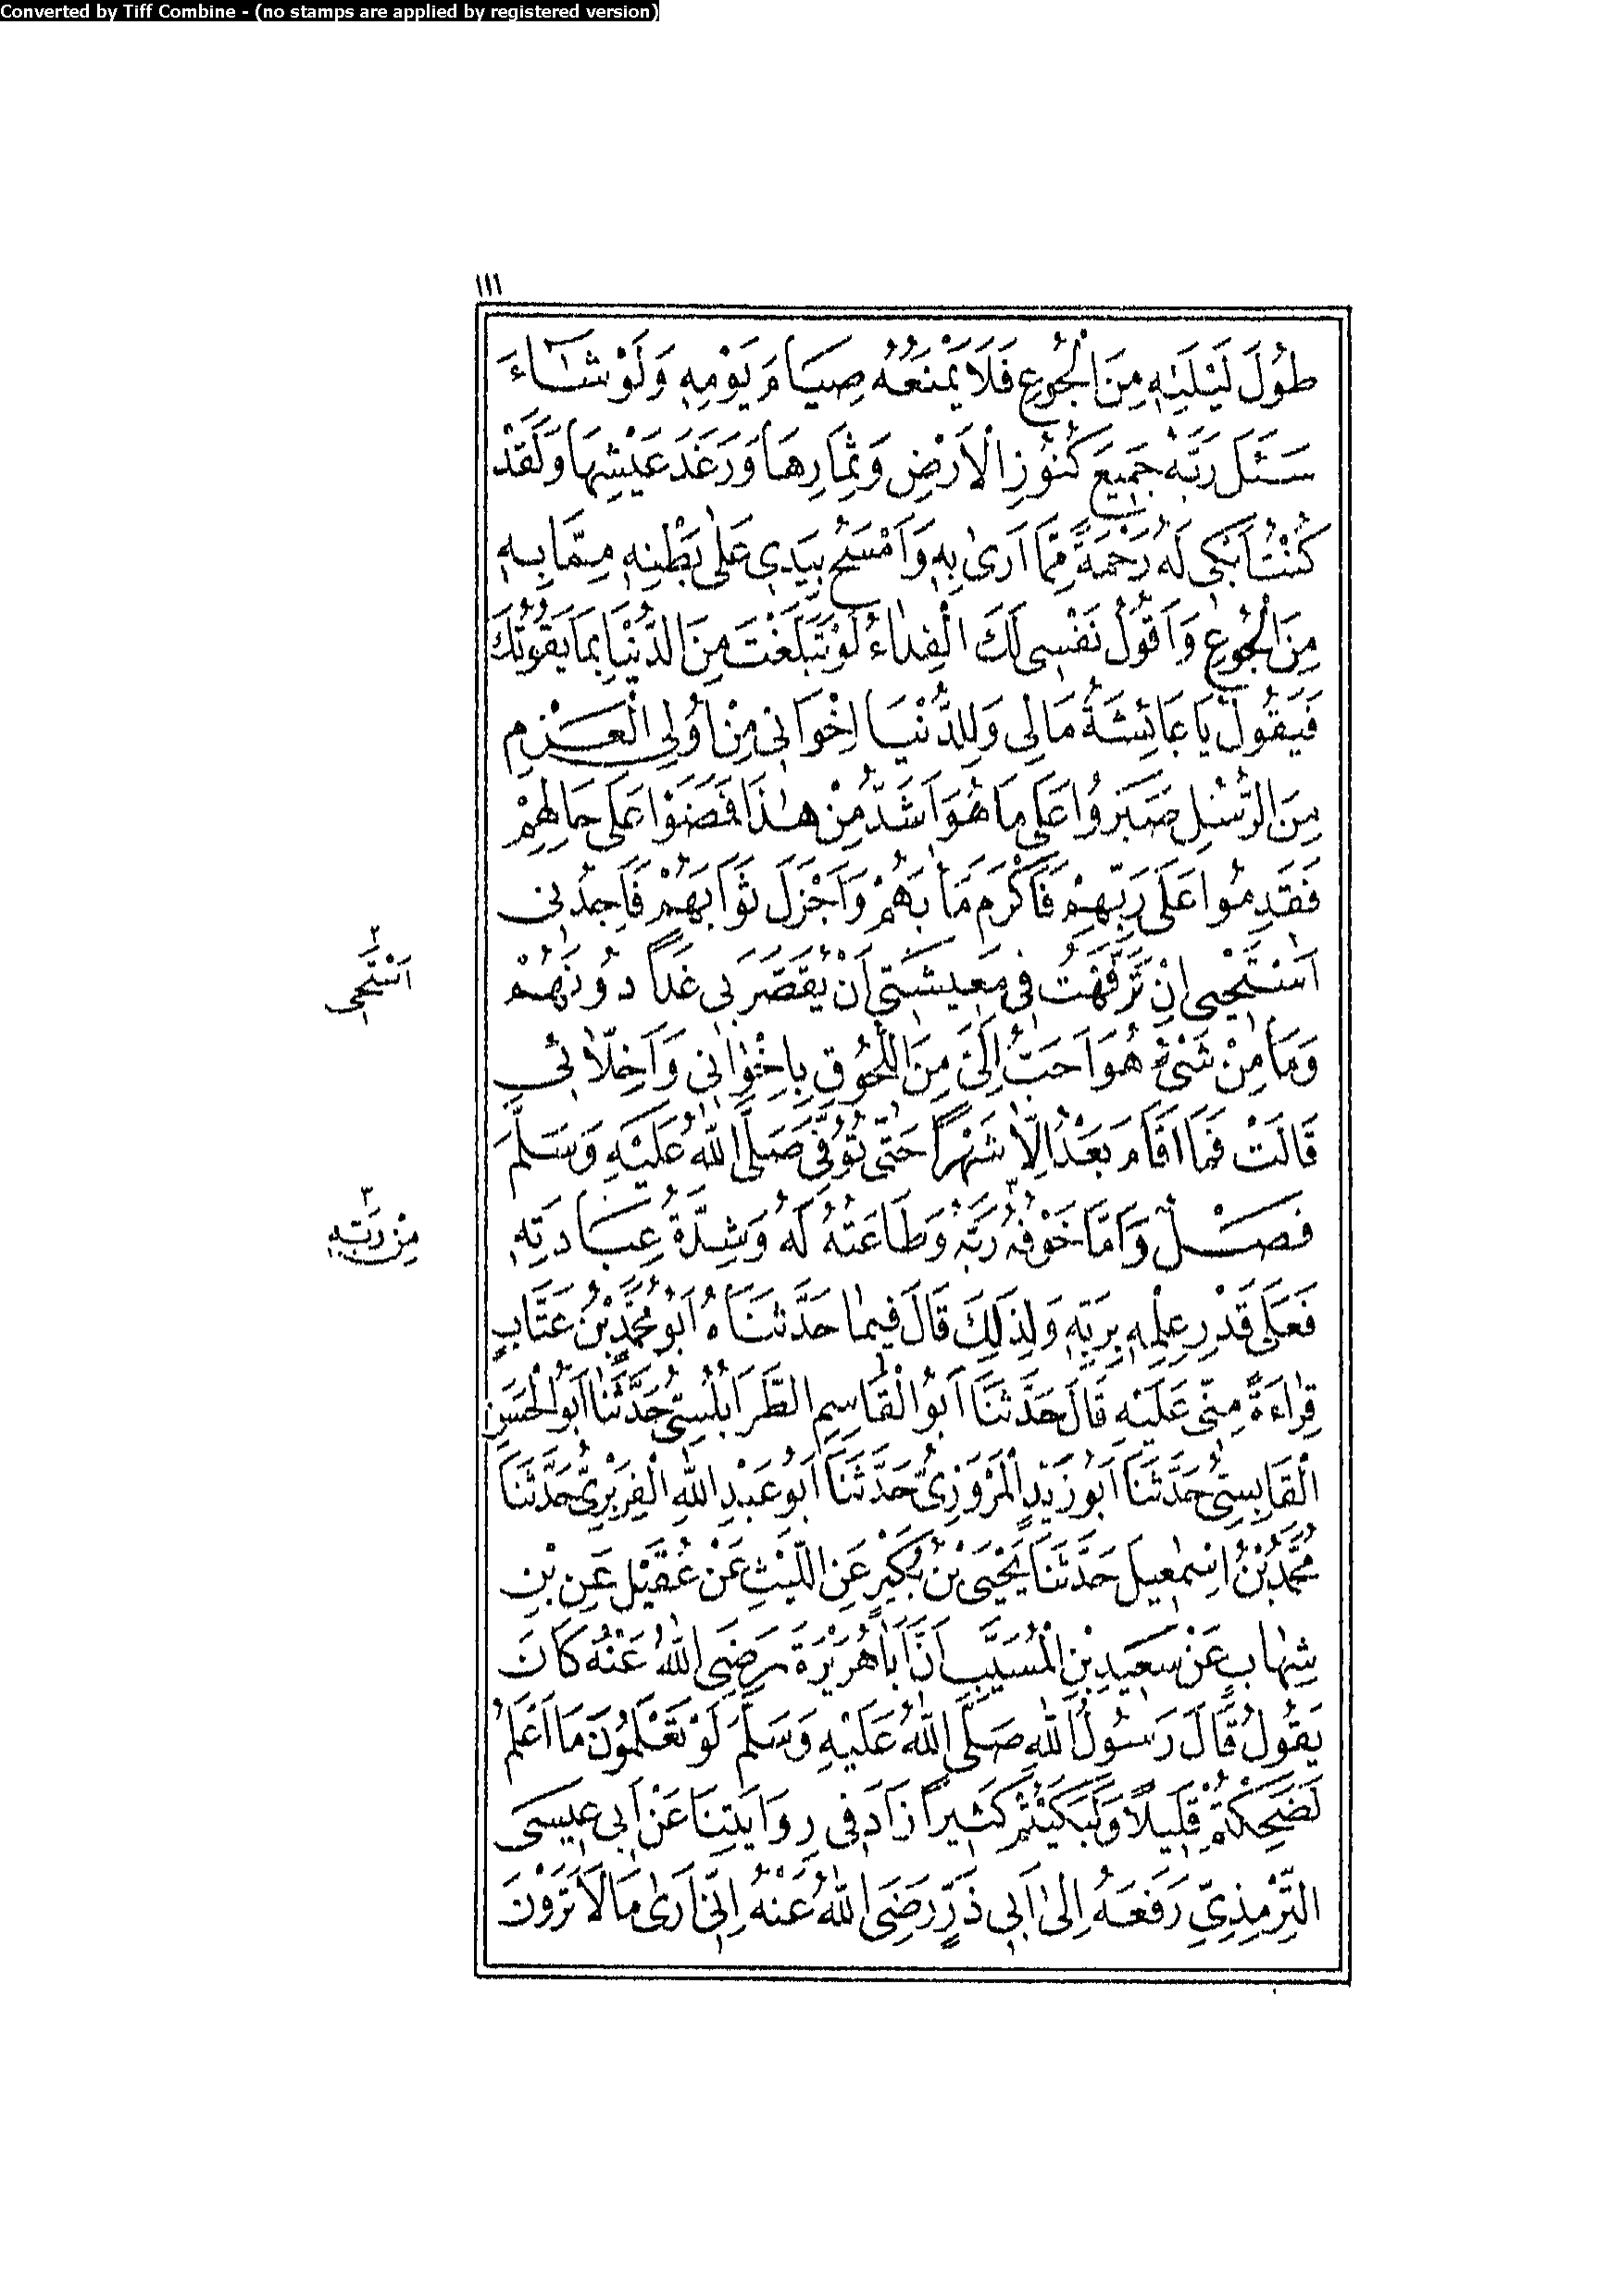 Converted by Tiff Combine - (no stamps are applied by registered version)
١١١
طُولَ لَيْلَتِهِ مِنَ الْجُوعِ فَلَا يَمْنَعُهُ صِيَامَ يَوْمِهِ وَلَوْ شَاءَ
سَئَلَ رَبَّهُ جَمِيعَ كُنُوزِ الْاَرْضِ وَثِمَارِهَا وَرَغَدَ عَيْشِهَا وَلَقَدْ
كُنْتُ اَبْكِى لَهُ رَحْمَةً مِمَّا اَرٰى بِهِ وَاَمْسَحُ بِيَدِى عَلٰى بَطْنِهِ مِمَّا بِهِ
مِنَ الْجُوعِ وَاَقُولُ نَفْسِى لَكَ الْفِدَاءُ لَوْ تَبَلَّغْتَ مِنَ الدُّنْيَا بِمَا يَقُوتُكَ
فَيَقُولُ يَا عَائِشَةُ مَالِى وَلِلدُّنْيَا اِخْوَانِى مِنْ اُولِى الْعَزْمِ
مِنَ الرُّسُلِ صَبَرُوا عَلٰى مَا هُوَ اَشَدُّ مِنْ هٰذَا فَمَضَوْا عَلٰى حَالِهِمْ
فَقَدِمُوا عَلٰى رَبِّهِمْ فَاَكْرَمَ مَاٰبَهُمْ وَاَجْزَلَ ثَوَابَهُمْ فَاَجِدُنِى
اَسْتَحْيِى اِنْ تَرَفَّهْتُ فِى مَعِيشَتِى اَنْ يُقَصِّرَ بِى غَدًا دُونَهُمْ
٢
اَسْتَحِى
وَمَا مِنْ شَىْءٍ هُوَ اَحَبُّ اِلَىَّ مِنَ اللُّحُوقِ بِاِخْوَانِى وَاَخِلَّائِى
قَالَتْ فَمَا اَقَامَ بَعْدُ اِلَّا شَهْرًا حَتّٰى تُوُفِّىَ صَلَّى اللّٰهُ عَلَيْهِ وَسَلَّمَ
فَصْلٌ وَاَمَّا خَوْفُهُ رَبَّهُ ٣ وَطَاعَتُهُ لَهُ وَشِدَّةُ عِبَادَتِهِ
٣
مِنْ رَبِّهِ
فَعَلٰى قَدْرِ عِلْمِهِ بِرَبِّهِ وَلِذٰلِكَ قَالَ فِيمَا حَدَّثَنَاهُ اَبُو مُحَمَّدِ بْنُ عَتَّابٍ
قِرَاءَةً مِنِّى عَلَيْهِ قَالَ حَدَّثَنَا اَبُو الْقَاسِمِ الطَّرَابُلُسِىُّ حَدَّثَنَا اَبُو الْحَسَنِ
الْقَابِسِىُّ حَدَّثَنَا اَبُو زَيْدٍ الْمَرْوَزِىُّ حَدَّثَنَا اَبُو عَبْدِ اللّٰهِ الْفِرَبْرِىُّ حَدَّثَنَا
مُحَمَّدُ بْنُ اِسْمٰعِيلَ حَدَّثَنَا يَحْيَى بْنُ بُكَيْرٍ عَنِ اللَّيْثِ عَنْ عُقَيْلٍ عَنِ بْنِ
شِهَابٍ عَنْ سَعِيدِ بْنِ الْمُسَيَّبِ اَنَّ اَبَا هُرَيْرَةَ رَضِىَ اللّٰهُ عَنْهُ كَانَ
يَقُولُ قَالَ رَسُولُ اللّٰهِ صَلَّى اللّٰهُ عَلَيْهِ وَسَلَّمَ لَوْ تَعْلَمُونَ مَا اَعْلَمُ
لَضَحِكْتُمْ قَلِيلًا وَلَبَكَيْتُمْ كَثِيرًا زَادَ فِى رِوَايَتِنَا عَنْ اَبِى عِيسَى
التِّرْمِذِىِّ رَفَعَهُ اِلٰى اَبِى ذَرٍّ رَضِىَ اللّٰهُ عَنْهُ اِنِّى اَرٰى مَا لَا تَرَوْنَ